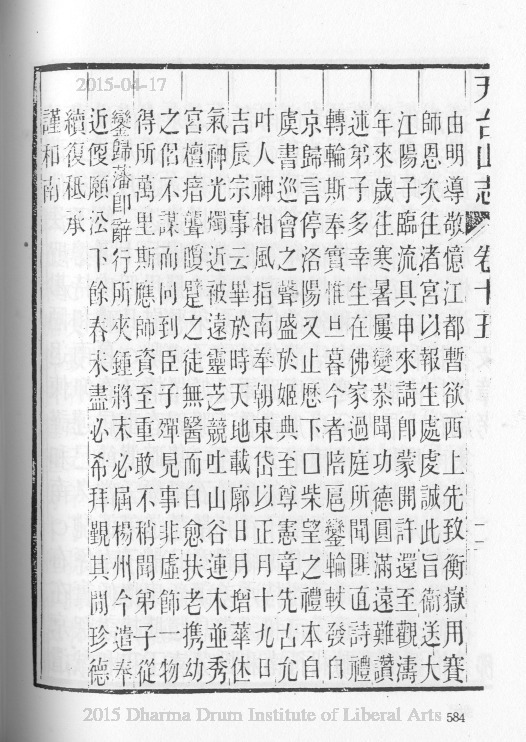 2015-04-17
天台山志 卷十五 十一
由明導敬憶江都暫欲西上先致衡嶽用賽
師恩次往渚宮以報生處虔誠此旨衛送大
江陽子臨流具申來請卽蒙開許還至觀濤
年來歲往寒暑屢變恭聞功德圓滿遠難讚
述弟子多幸生在佛家過庭所聞匪直詩禮
轉輪斯奉實惟旦暮今者陪扈鑾輪軷發自
京歸言停洛陽又止歷下口柴望之禮本自
虞書巡會之聲盛於姬典至尊憲章先古允
叶人神相風指南奉朝東岱以正月十九日
吉辰宗事云畢於時天地載廓日月增華休
氣神光燭近被遠靈芝競吐山谷連木並秀
宮檀瘖聾𧾷之徒無醫而自愈扶老携幼
之侶不謀而同到臣子殫見事非虛飾一物
得所萬里斯應師資至重敢不稍聞弟子從
鑾歸藩卽辭行所夾鍾將末必屆楊州今遣奉
近優願㳂下餘春未盡必希拜覲其閒珍德
續復秪承
謹和南
2015 Dharma Drum Institute of Liberal Arts
584